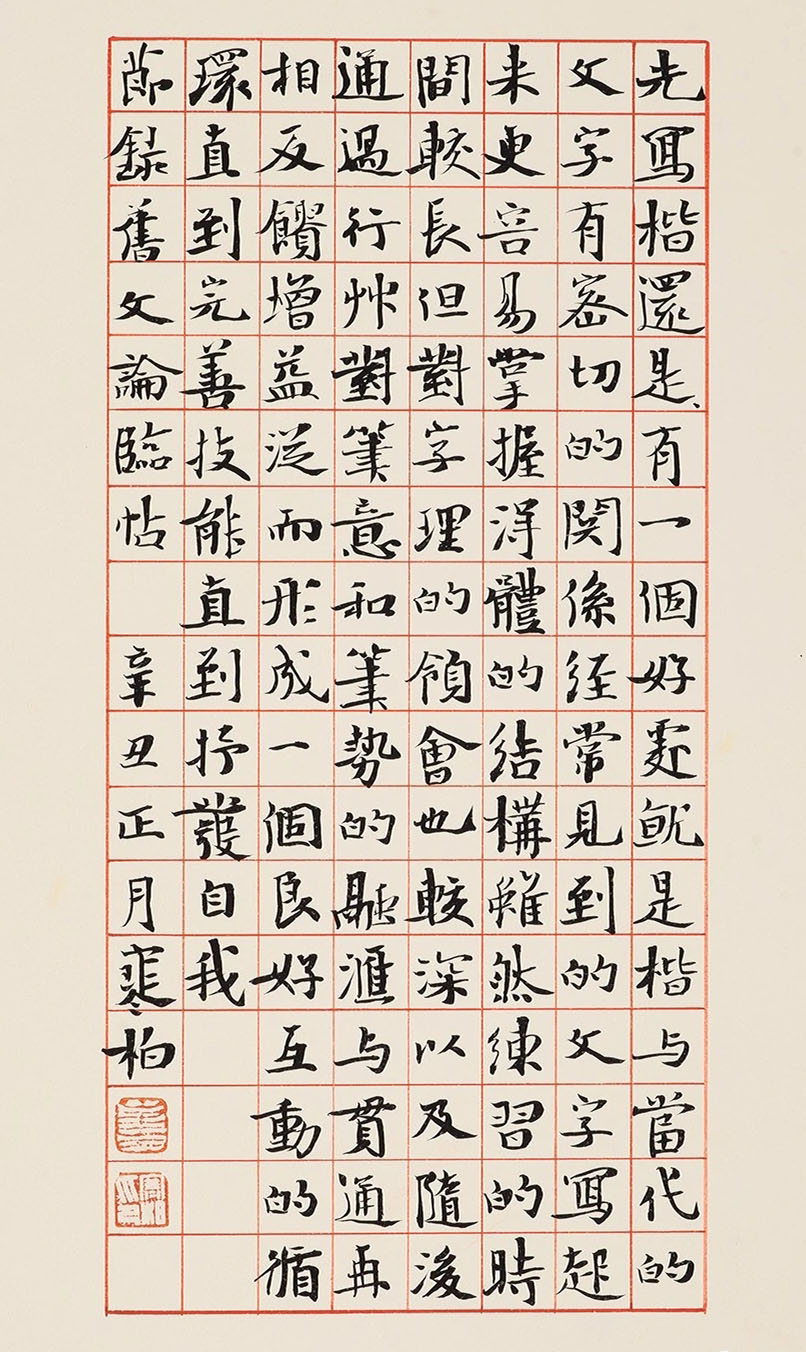 先寫楷還是有一個好處就是楷与當代的
文字有密切的関係经常見到的文字寫起
来更容易掌握得體的结構雖然练習的時
間較長但對字理的领會也較深以及隨後
通過行艸對筆意和筆势的融滙与贯通再
相反饋增益从而形成一個良好互動的循
環直到完善技能直到抒發自我
節録舊文論臨帖 辛丑正月寒柏